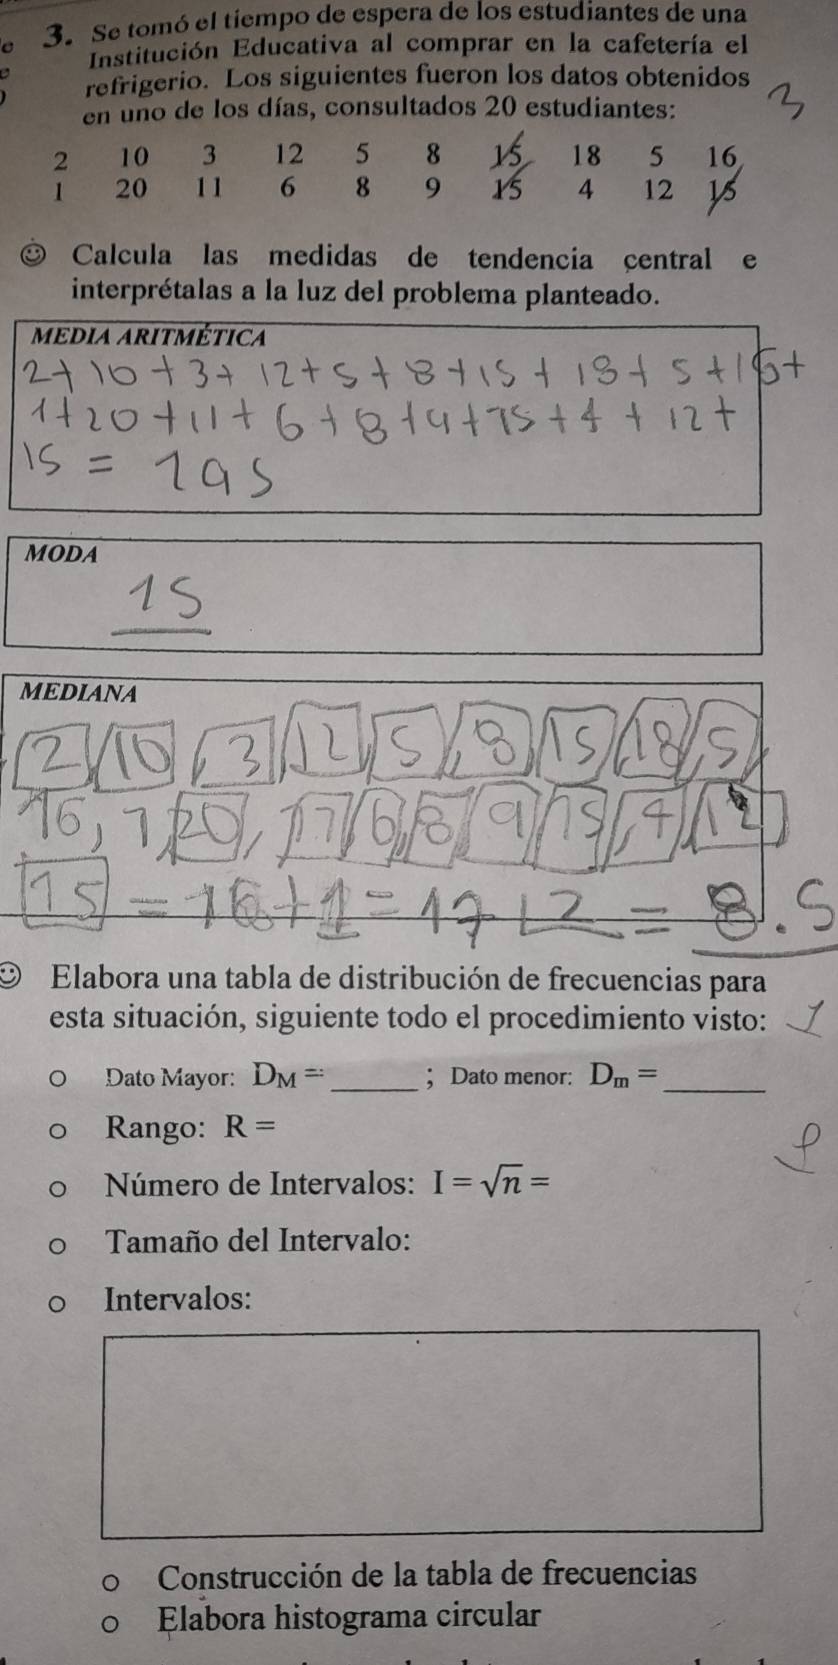 3. Se tomó el tiempo de espera de los estudiantes de una
Institución Educativa al comprar en la cafetería el
refrigerio. Los siguientes fueron los datos obtenidos
en uno de los días, consultados 20 estudiantes:
3
2 10 3 12 5 8 15 18 5 16
1 20 11 6 8 9 15 4 12 15
Calcula las medidas de tendencia central e
interprétalas a la luz del problema planteado.
MEDIA ARITMÉTICA
2+10+3+12+5+8+15+18+5+16+
1+20+11+6+8+9+15+4+12+
15 = 195
MODA
15
MEDIANA
2, 10, 3, 12, 5, 8, 15, 18, 5,
16, 1, 20, 11, 6, 8, 9, 15, 4, 12
15 = 16+1 = 17 ÷ 2 = 8.5
Elabora una tabla de distribución de frecuencias para
esta situación, siguiente todo el procedimiento visto:
Dato Mayor: D_M = ______ ; Dato menor: D_m = ______
Rango: R =
Número de Intervalos: I = √n =
Tamaño del Intervalo:
Intervalos:
Construcción de la tabla de frecuencias
Elabora histograma circular